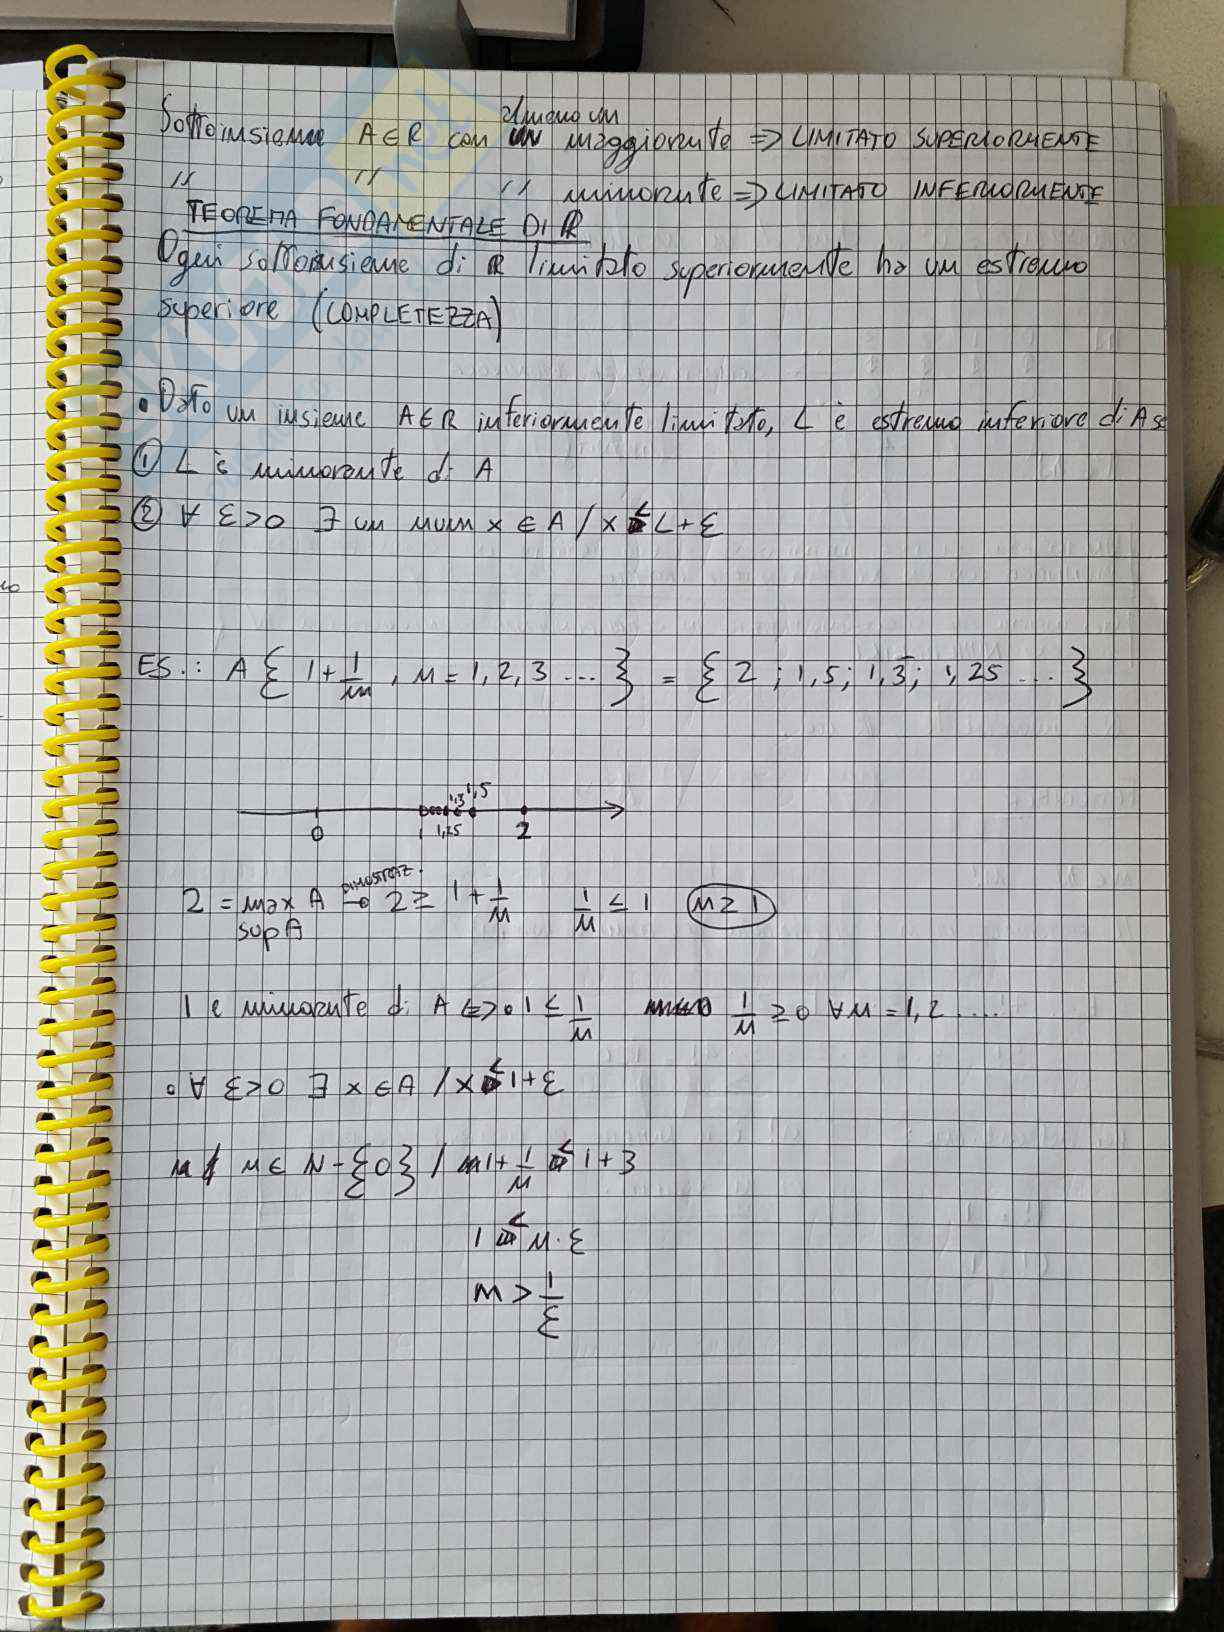 almeno un
Sottoinsieme A∈R con un maggiorante => LIMITATO SUPERIORMENTE
" " " minorante => LIMITATO INFERIORMENTE
TEOREMA FONDAMENTALE DI ℝ
Ogni sottoinsieme di ℝ limitato superiormente ha un estremo
superiore (COMPLETEZZA)
• Dato un insieme A∈R inferiormente limitato, L è estremo inferiore di A se
① L è minorante di A
② ∀ ε>0 ∃ un num x ∈ A / x < L+ε
ES.: A { 1+1/n , n = 1,2,3 ... } = { 2 ; 1,5; 1,3̅; 1,25 ... }
1,3 1,5
0 1 1,25 2
DIMOSTRAZ.
2 = max A → 2 ≥ 1 + 1/n 1/n ≤ 1 n ≥ 1
sup A
1 è minorante di A <=> 0 1 ≤ 1/n 1/n ≥ 0 ∀n = 1,2 ....
• ∀ ε>0 ∃ x ∈ A / x < 1+ε
n ∈ N-{0} / 1+1/n < 1+3
1 < n·ε
n > 1/ε